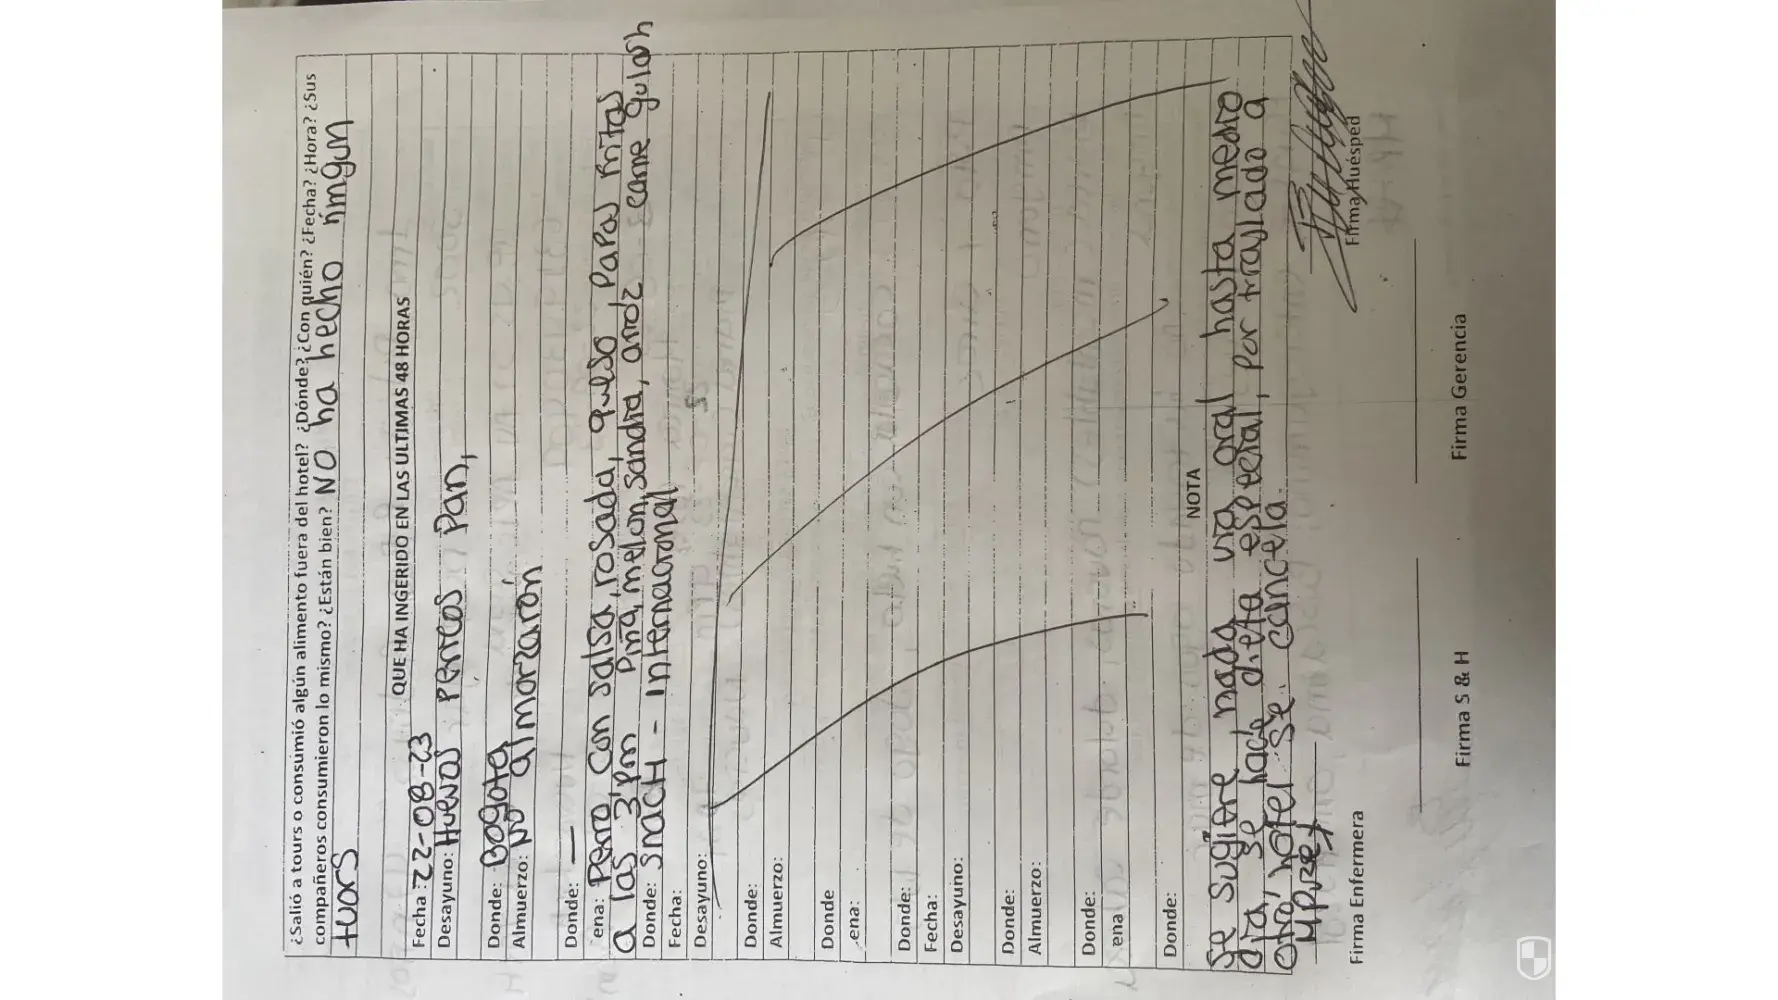 ¿Salió a tours o consumió algún alimento fuera del hotel? ¿Dónde? ¿Con quién? ¿Fecha? ¿Hora? ¿Sus
compañeros consumieron lo mismo? ¿Están bien? NO ha hecho ningun
tuors
QUE HA INGERIDO EN LAS ULTIMAS 48 HORAS
Fecha: 22-08-23
Desayuno: Huevos Pericos Pan,
Donde: Bogota
Almuerzo: No almorzaron
Donde: —
ena: Perro con salsa, rosada, queso, Papas fritas
a las 3 pm Piña, melon, sandia, arroz carne gulash
Donde: snacH - Internacional
Fecha:
Desayuno:
Donde:
Almuerzo:
Donde
ena:
Donde:
Fecha:
Desayuno:
Donde:
Almuerzo:
Donde:
ena
Donde:
NOTA
Se sugiere nada via oral hasta medio
dia, se hace dieta especial, por traslado a
otro hotel se cancela.
Firma Enfermera
Firma S & H
Firma Gerencia
Firma Huésped